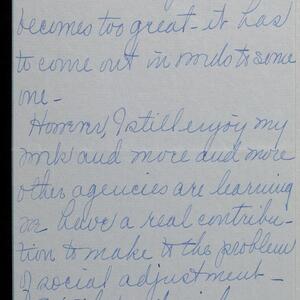 becomes too great - it has
to come out in words to some
one -
However, I still enjoy my
work and more and more
other agencies are learning
we have a real contribu-
tion to make to the problem
of social adjustment -